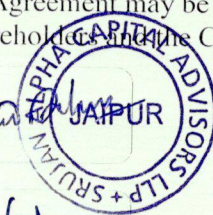 Agreement may be
eholders and the C
SRUJAN ALPHA CAPITAL ADVISORS LLP
JAIPUR